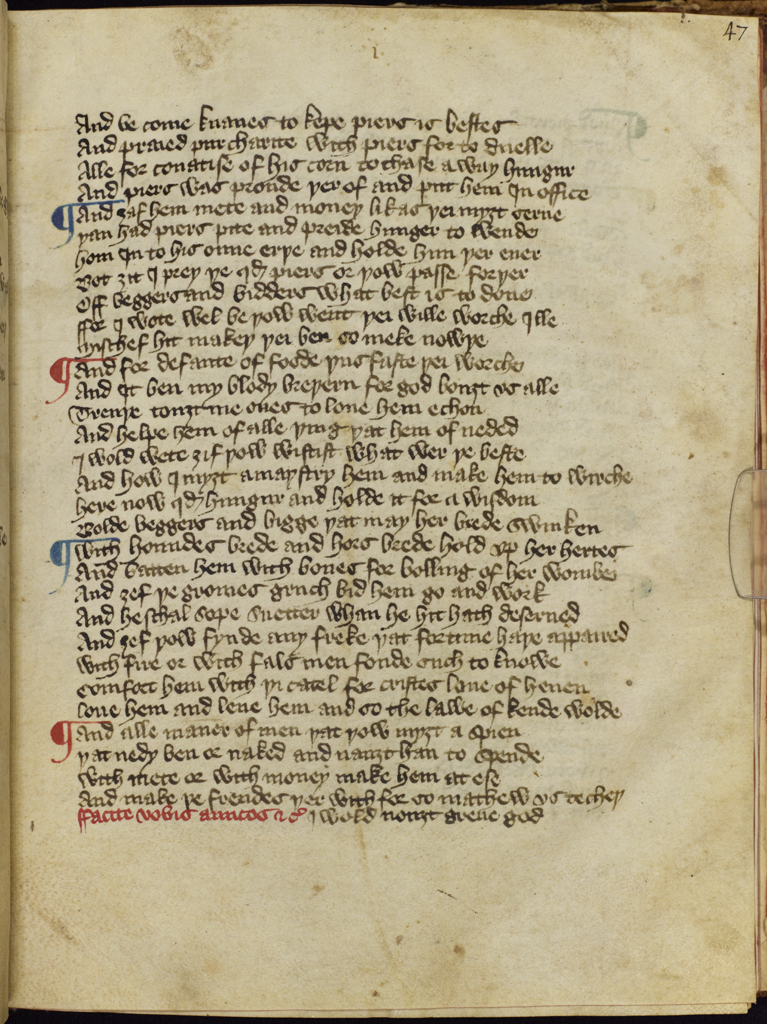 47
And be come knaues to kepe piers is bestes
And praied pur charite with piers for to duelle
Alle for couatise of his corn to chase a way hungur
And piers was proude yer of and put hem In office
¶ And ȝaf hem mete and money lik as yei myȝt serue
yan had piers pite and preide hunger to wende
hom In to his oune erye and holde him yer euer
Bot ȝit I prey ye qd piers or yow passe foryer
Off beggers and bidders what best is to done
ffor I wote wel be yow went yei wille worche Ille
myschef hit makey yei ben so meke nowye
¶ And for defaute of foode yus faste yei worche
And It ben my blody breyern for god bouȝt vs alle
Treuye touȝt me ones to loue hem echon
And helpe hem of alle ying yat hem of neded
I wold wete ȝif yow wistist what wer ye beste
And how I myȝt amaystry hem and make hem to wirche
here now qd hungur and holde it for a wisdom
Bolde beggers and bigge yat may her brede swinken
¶ with houndes brede and hors brede hold vp her hertes
And batten hem with bones for bolling of her wombes
And ȝef ye gromes gruch bid hem go and work
And he schal sope suetter whan he hit hath deserued
And ȝef yow fynde any freke yat fortune haye appaired
with fire or with fals men fonde such to knowe
comfort hem with yi catel for cristes loue of heuen
loue hem and lene hem and so the lawe of kende wolde
¶ And alle maner of men yat yow myȝt a spien
yat nedy ben or naked and nauȝt han to spende
with mete or with money make hem at ese
And make ye frendes yer with for so mathew vs techey
ffacite vobis amicos &c I wold nouȝt greue god